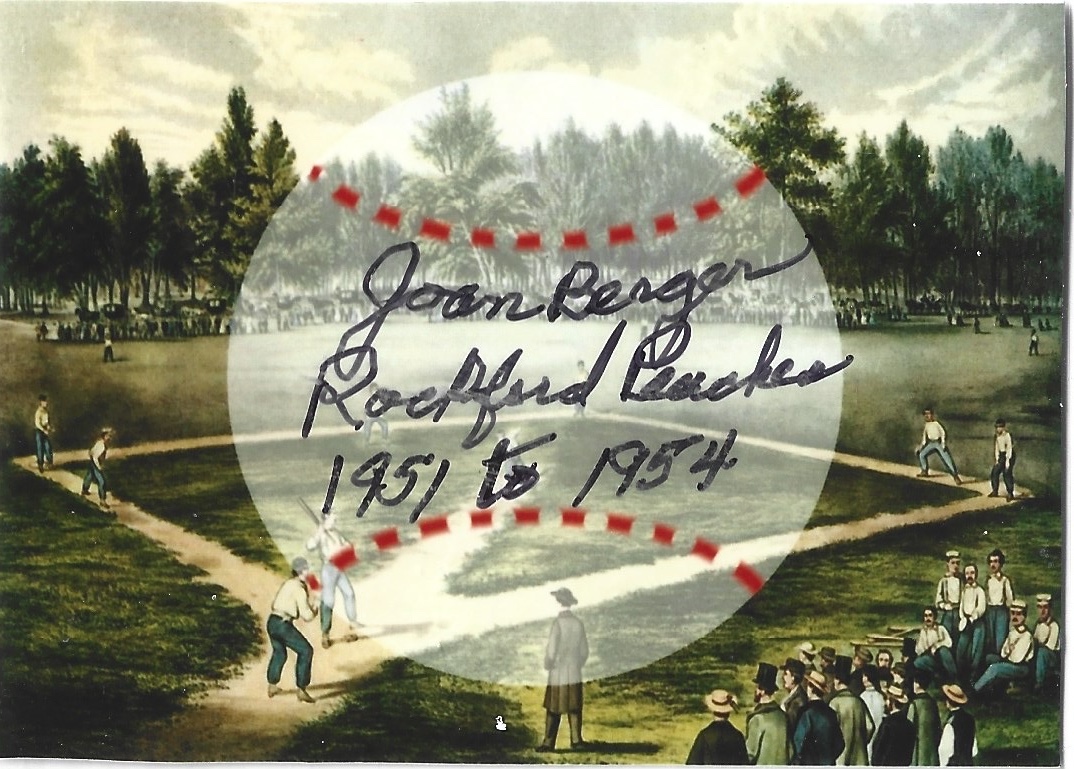 Joan Berger
Rockford Peaches
1951 to 1954